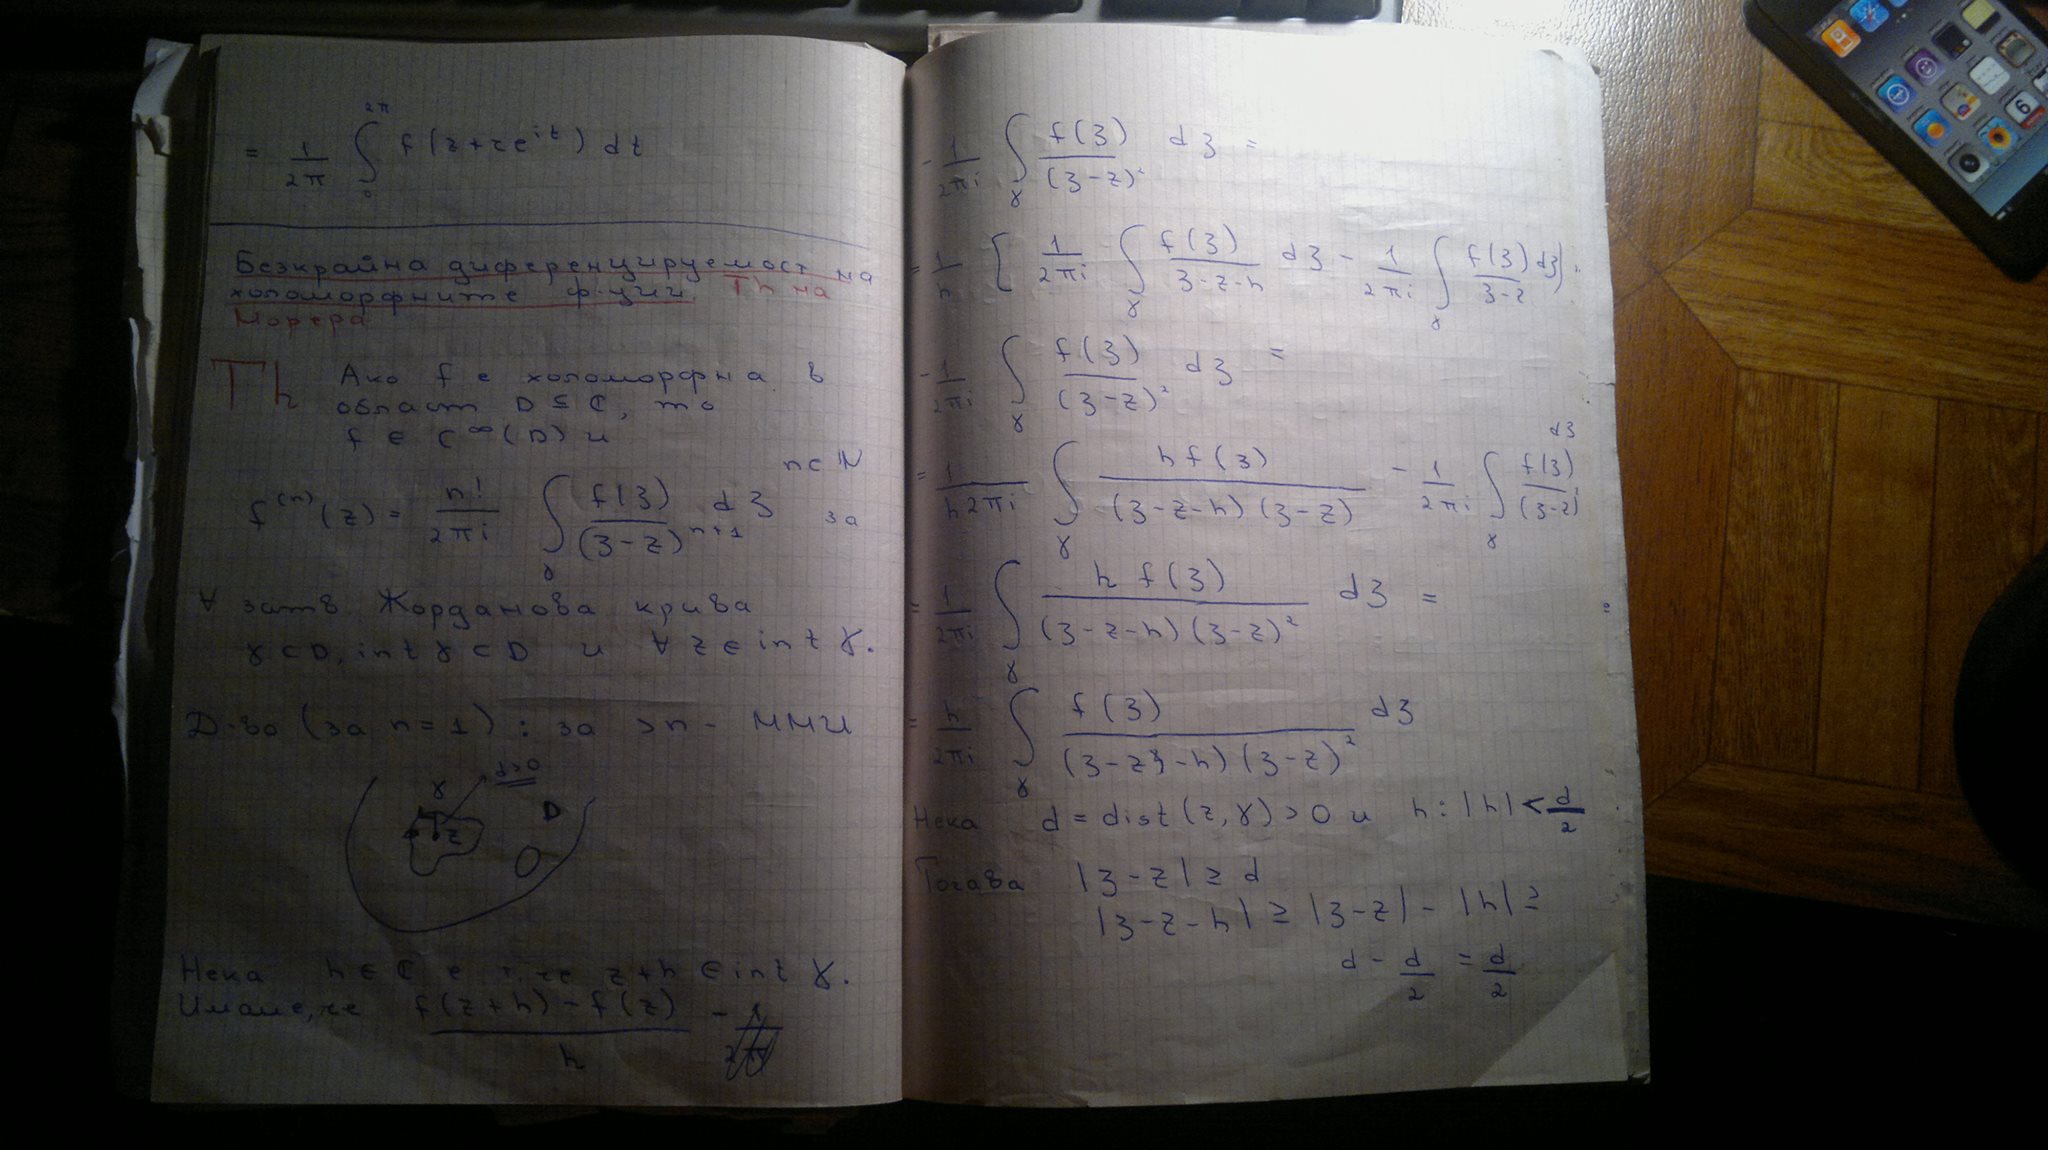 = 1/2π ∫₀^2π f(z+re^it) dt
Безкрайна диференцируемост на
холоморфните ф-ции. Th на
Морера
Th Ако f е холоморфна в
област D ⊆ ℂ, то
f ∈ C^∞(D) и
f^(n)(z) = n!/2πi ∫_γ f(ζ)/(ζ-z)^n+1 dζ за n∈ℕ
∀ затв. Жорданова крива
γ⊂D, int γ⊂D и ∀ z∈int γ.
Д-во (за n=1): за >n - ММИ
γ d>0
z D
Нека h∈ℂ е т. че z+h ∈ int γ.
Имаме, че f(z+h)-f(z)/h -
- 1/2πi ∫_γ f(ζ)/(ζ-z)² dζ =
= 1/h [ 1/2πi ∫_γ f(ζ)/ζ-z-h dζ - 1/2πi ∫_γ f(ζ)/ζ-z dζ ] -
- 1/2πi ∫_γ f(ζ)/(ζ-z)² dζ =
= 1/h2πi ∫_γ hf(ζ)/(ζ-z-h)(ζ-z) - 1/2πi ∫_γ f(ζ)/(ζ-z)² dζ
= 1/2πi ∫_γ h f(ζ)/(ζ-z-h)(ζ-z)² dζ =
= h/2πi ∫_γ f(ζ)/(ζ-z-h)(ζ-z)² dζ
Нека d = dist(z,γ)>0 и h: |h| < d/2
Тогава |ζ-z| ≥ d
|ζ-z-h| ≥ |ζ-z| - |h| ≥
d - d/2 = d/2